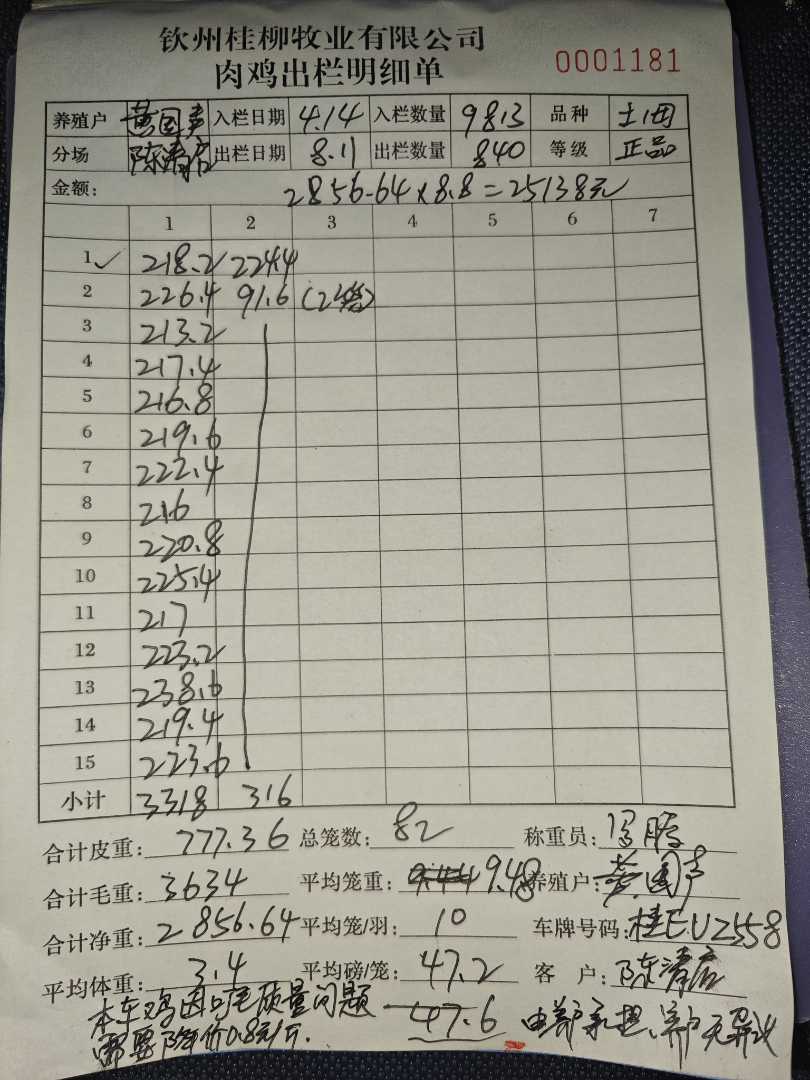 钦州桂柳牧业有限公司
肉鸡出栏明细单 0001181
养殖户 黄国声 入栏日期 4.14 入栏数量 9813 品种
分场 陈清店 出栏日期 8.11 出栏数量 840 等级 正品
金额: 2856.64×8.8=25138元
1 2 3 4 5 6 7
1 ✓ 218.2 224.4
2 226.4 91.6 (2笼)
3 213.2
4 217.4
5 216.8
6 219.6
7 222.4
8 216
9 220.8
10 225.4
11 217
12 223.2
13 238.6
14 219.4
15 223.6
小计 3318 316
合计皮重: 777.36 总笼数: 82 称重员: 冯腾
合计毛重: 3634 平均笼重: 9.48 养殖户: 黄国声
合计净重: 2856.64 平均笼/羽: 10 车牌号码: 桂EUZ558
平均体重: 3.4 平均磅/笼: 47.2 客 户: 陈清店
本车鸡因口毛质量问题 47.6 由养户承担、养户无异议
需要降价0.8元/斤.